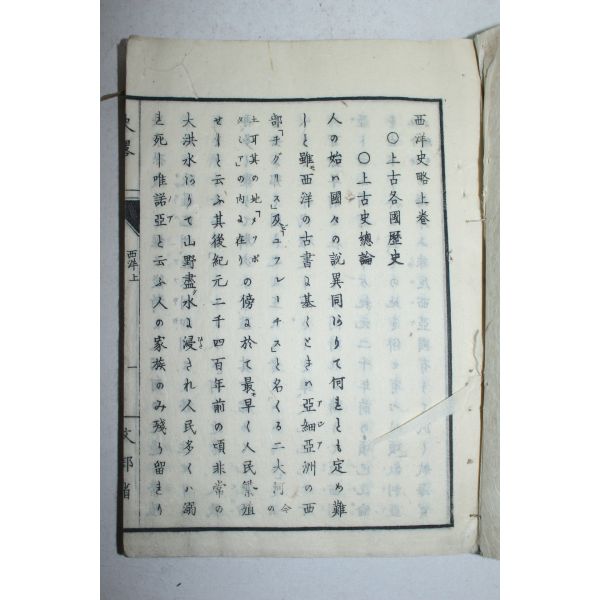 西洋史略上卷
〇上古各國歷史
〇上古史總論
人の始ハ國々の說異同ありて何とも定め難
しと雖西洋の古書に基くときハ亞細亞洲の西
部「チグリス」及「ユフレーチス」と名くる二大河今の
土耳其の地「メソポ
タミア」の內に在りの傍に於て最早く人民繁殖
せしと云ふ其後紀元二千四百年前の頃非常の
大洪水ありて山野盡水に浸され人民多くハ溺
れ死し唯諾亞と云ふ人の家族のみ殘り留まり
史略
西洋上
一
文部省